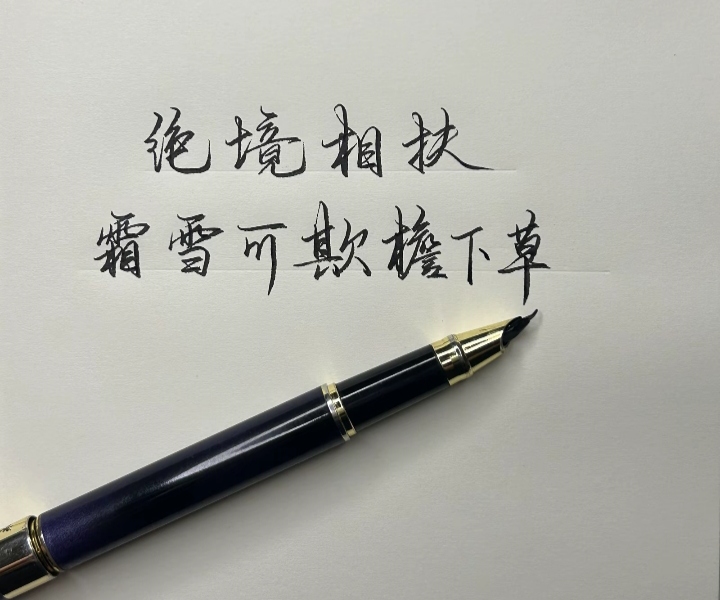 绝境相扶
霜雪可欺檐下草